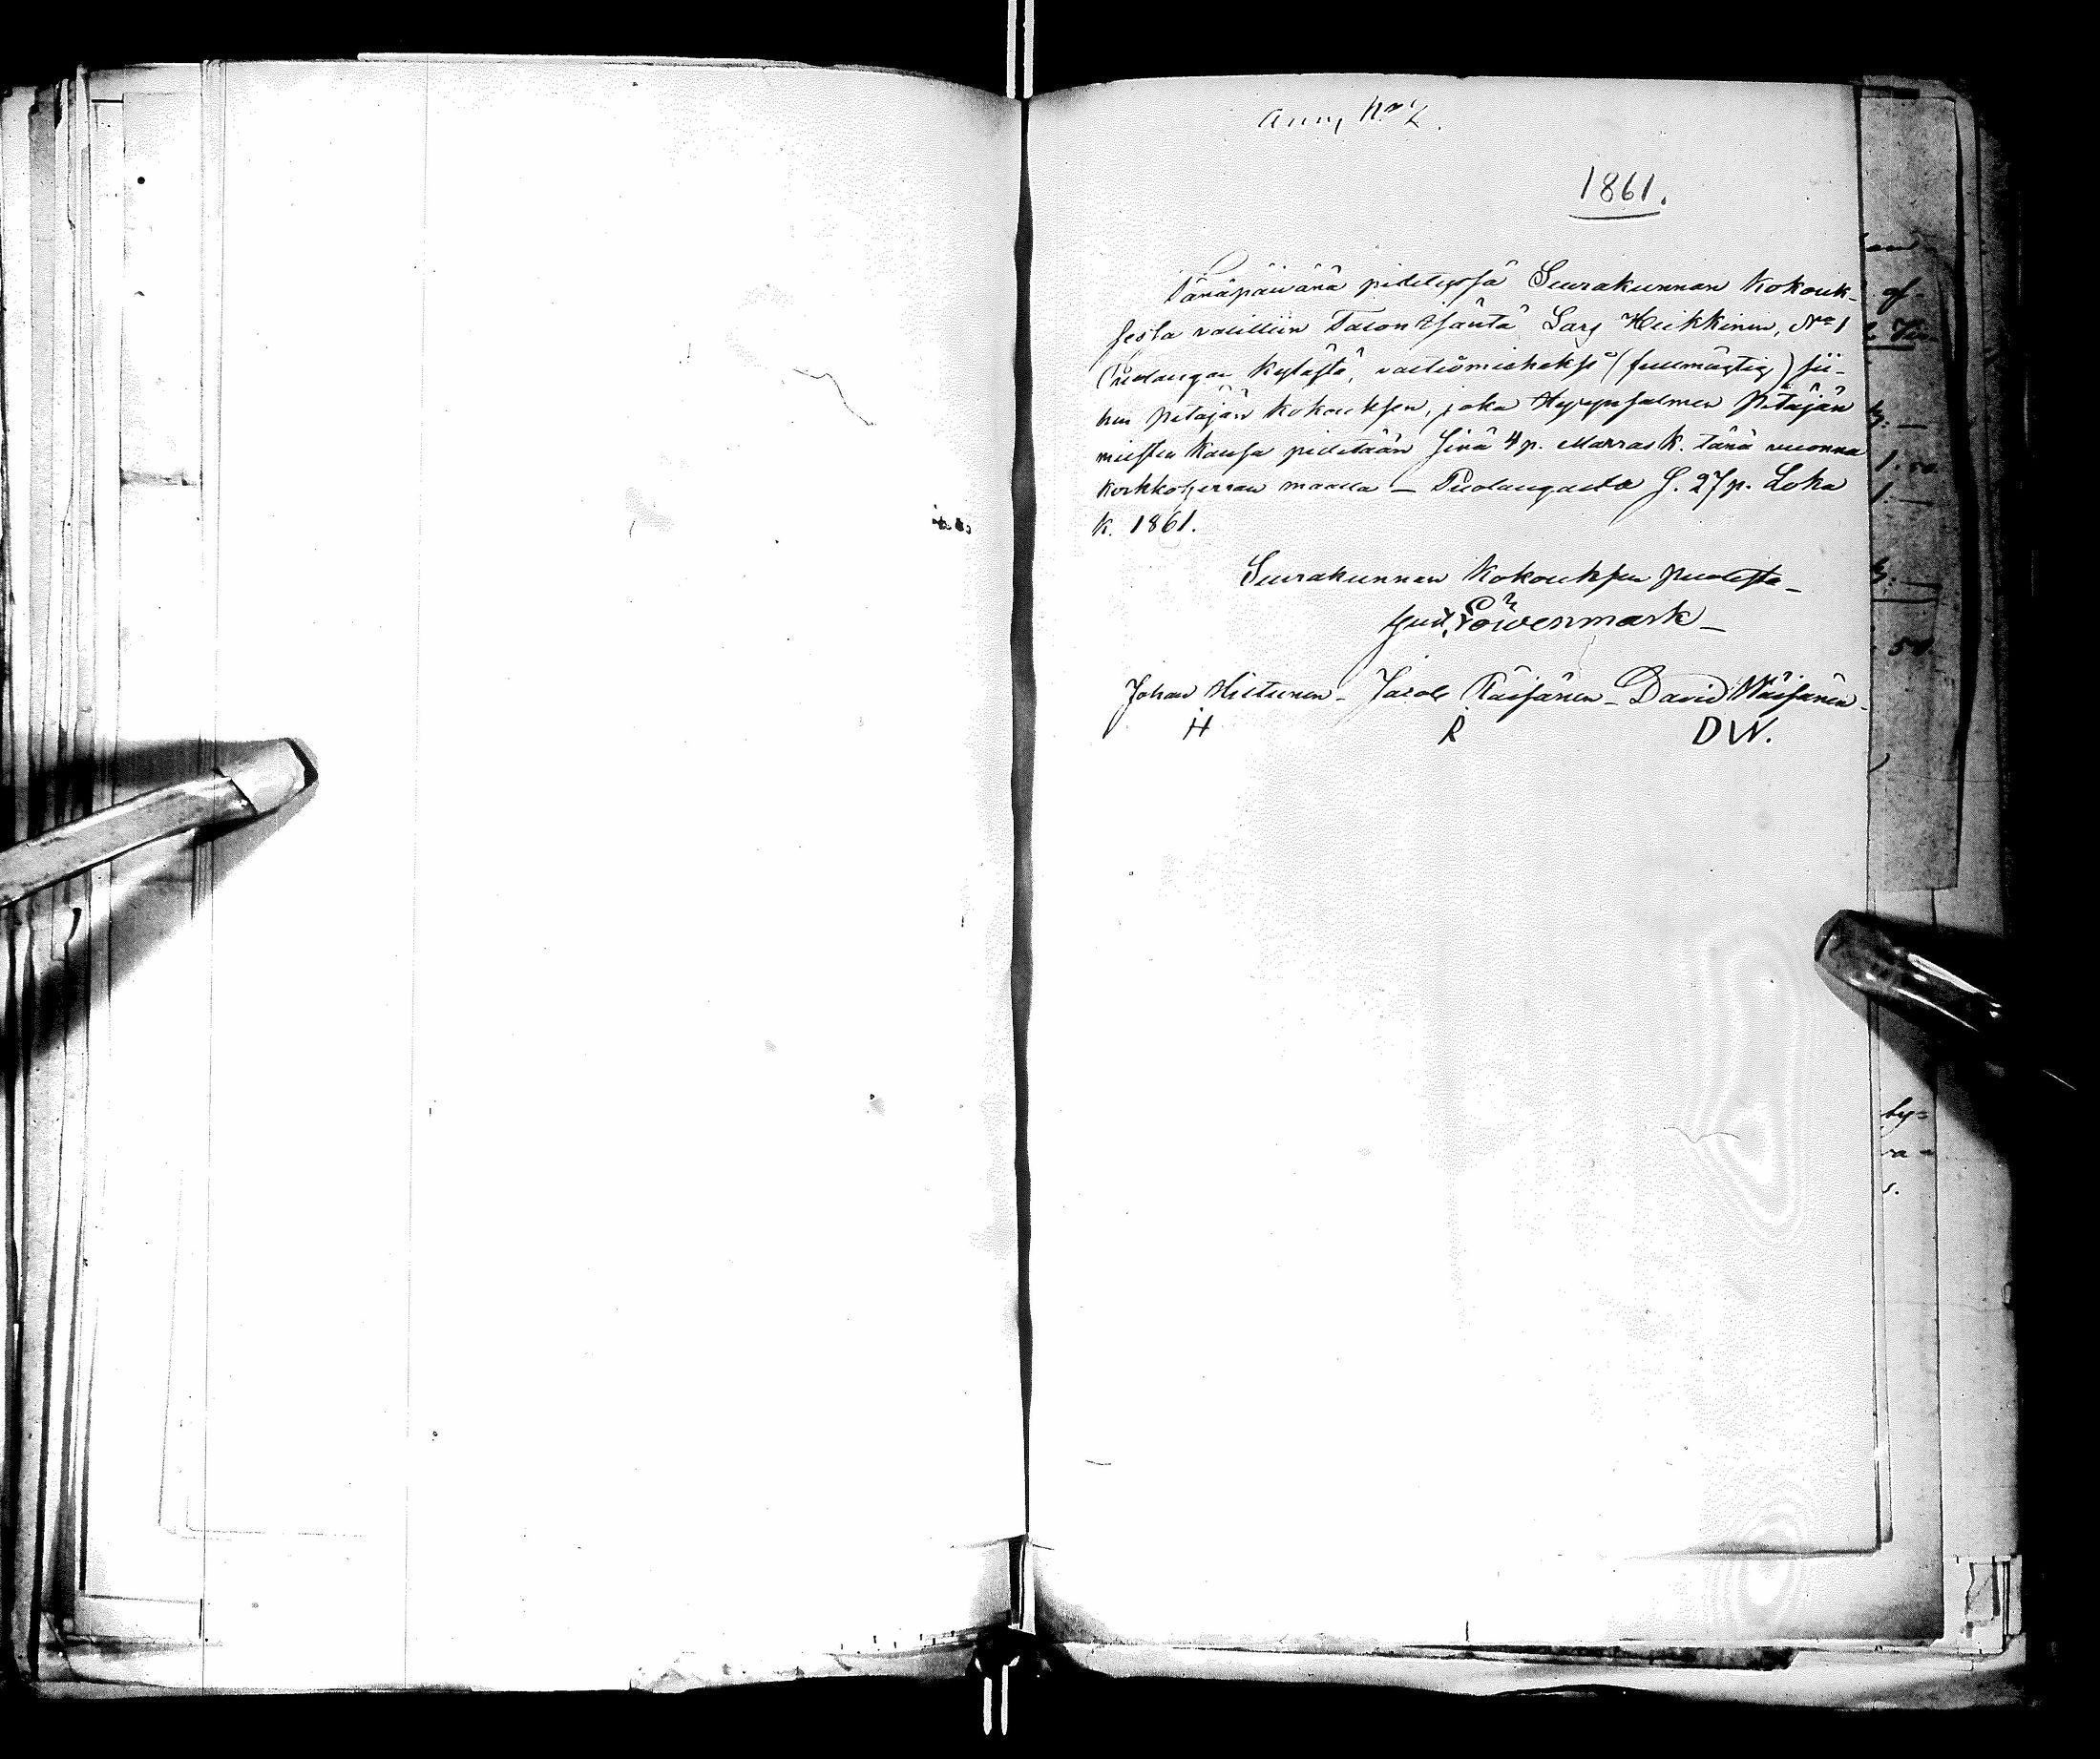 No 2.
1861.
Tänäpäivänä pidetyssä Seurakunnan Kokouk-
sesta valittiin Talon Isäntä Lars Heikkinen, No 1
Puolangan kylästä, valtuomieheksi (fullmägtig) sii-
hen pitäjän kokouksen, joka Hyrynsalmen Pitäjän
miesten kansa pidetään sinä 4 p. Marras K. tänä vuonna
kirkkoherran maalla — Puolangalla S. 27 p. Loka
k. 1861.
Seurakunnan Kokouksen puolesta —
Gust. Löwenmark —
Johan Hiltunen – Jacob Räisänen – David Wäisänen –
H R DW.